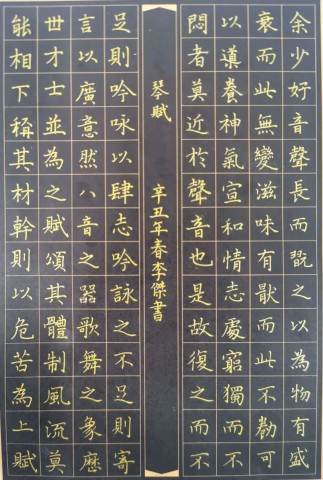 余少好音聲長而翫之以為物有盛
衰而此無變滋味有猒而此不勌可
以導養神氣宣和情志處窮獨而不
悶者莫近於聲音也是故復之而不
琴賦
辛丑年春李傑書
足則吟咏以肆志吟詠之不足則寄
言以廣意然八音之器歌舞之象歷
世才士並為之賦頌其體制風流莫
能相下稱其材幹則以危苦為上賦